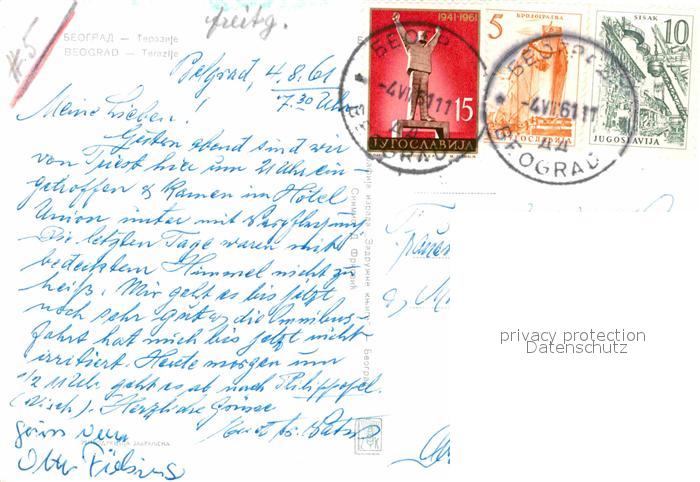 #5
freitg.
БЕОГРАД — Теразије
BEOGRAD — Terazije
Belgrad, 4.8.61
7.30 Uhr
Meine Lieben!
Gestern abend sind wir
von Triest hier um 21 Uhr ein-
getroffen & kamen im Hotel
Union unter mit Verpflegung
Die letzten Tage waren mit
bedecktem Himmel nicht zu
heiß. Mir geht es bis jetzt
noch sehr gut & die Omnibus-
fahrt hat mich bis jetzt nicht
irritiert. Heute morgen um
1/2 11 Uhr geht es ab nach Philippopel.
(Nisch). Herzliche Grüsse
1941-1961
15
ЈУГОСЛАВИЈА
5
БРОДОГРАДЊА
SISAK
10
JUGOSLAVIJA
БЕОГРАД
-4VIII61 11
BEOGRAD
БЕОГРАД
-4VIII61 11
BEOGRAD
privacy protection
Datenschutz